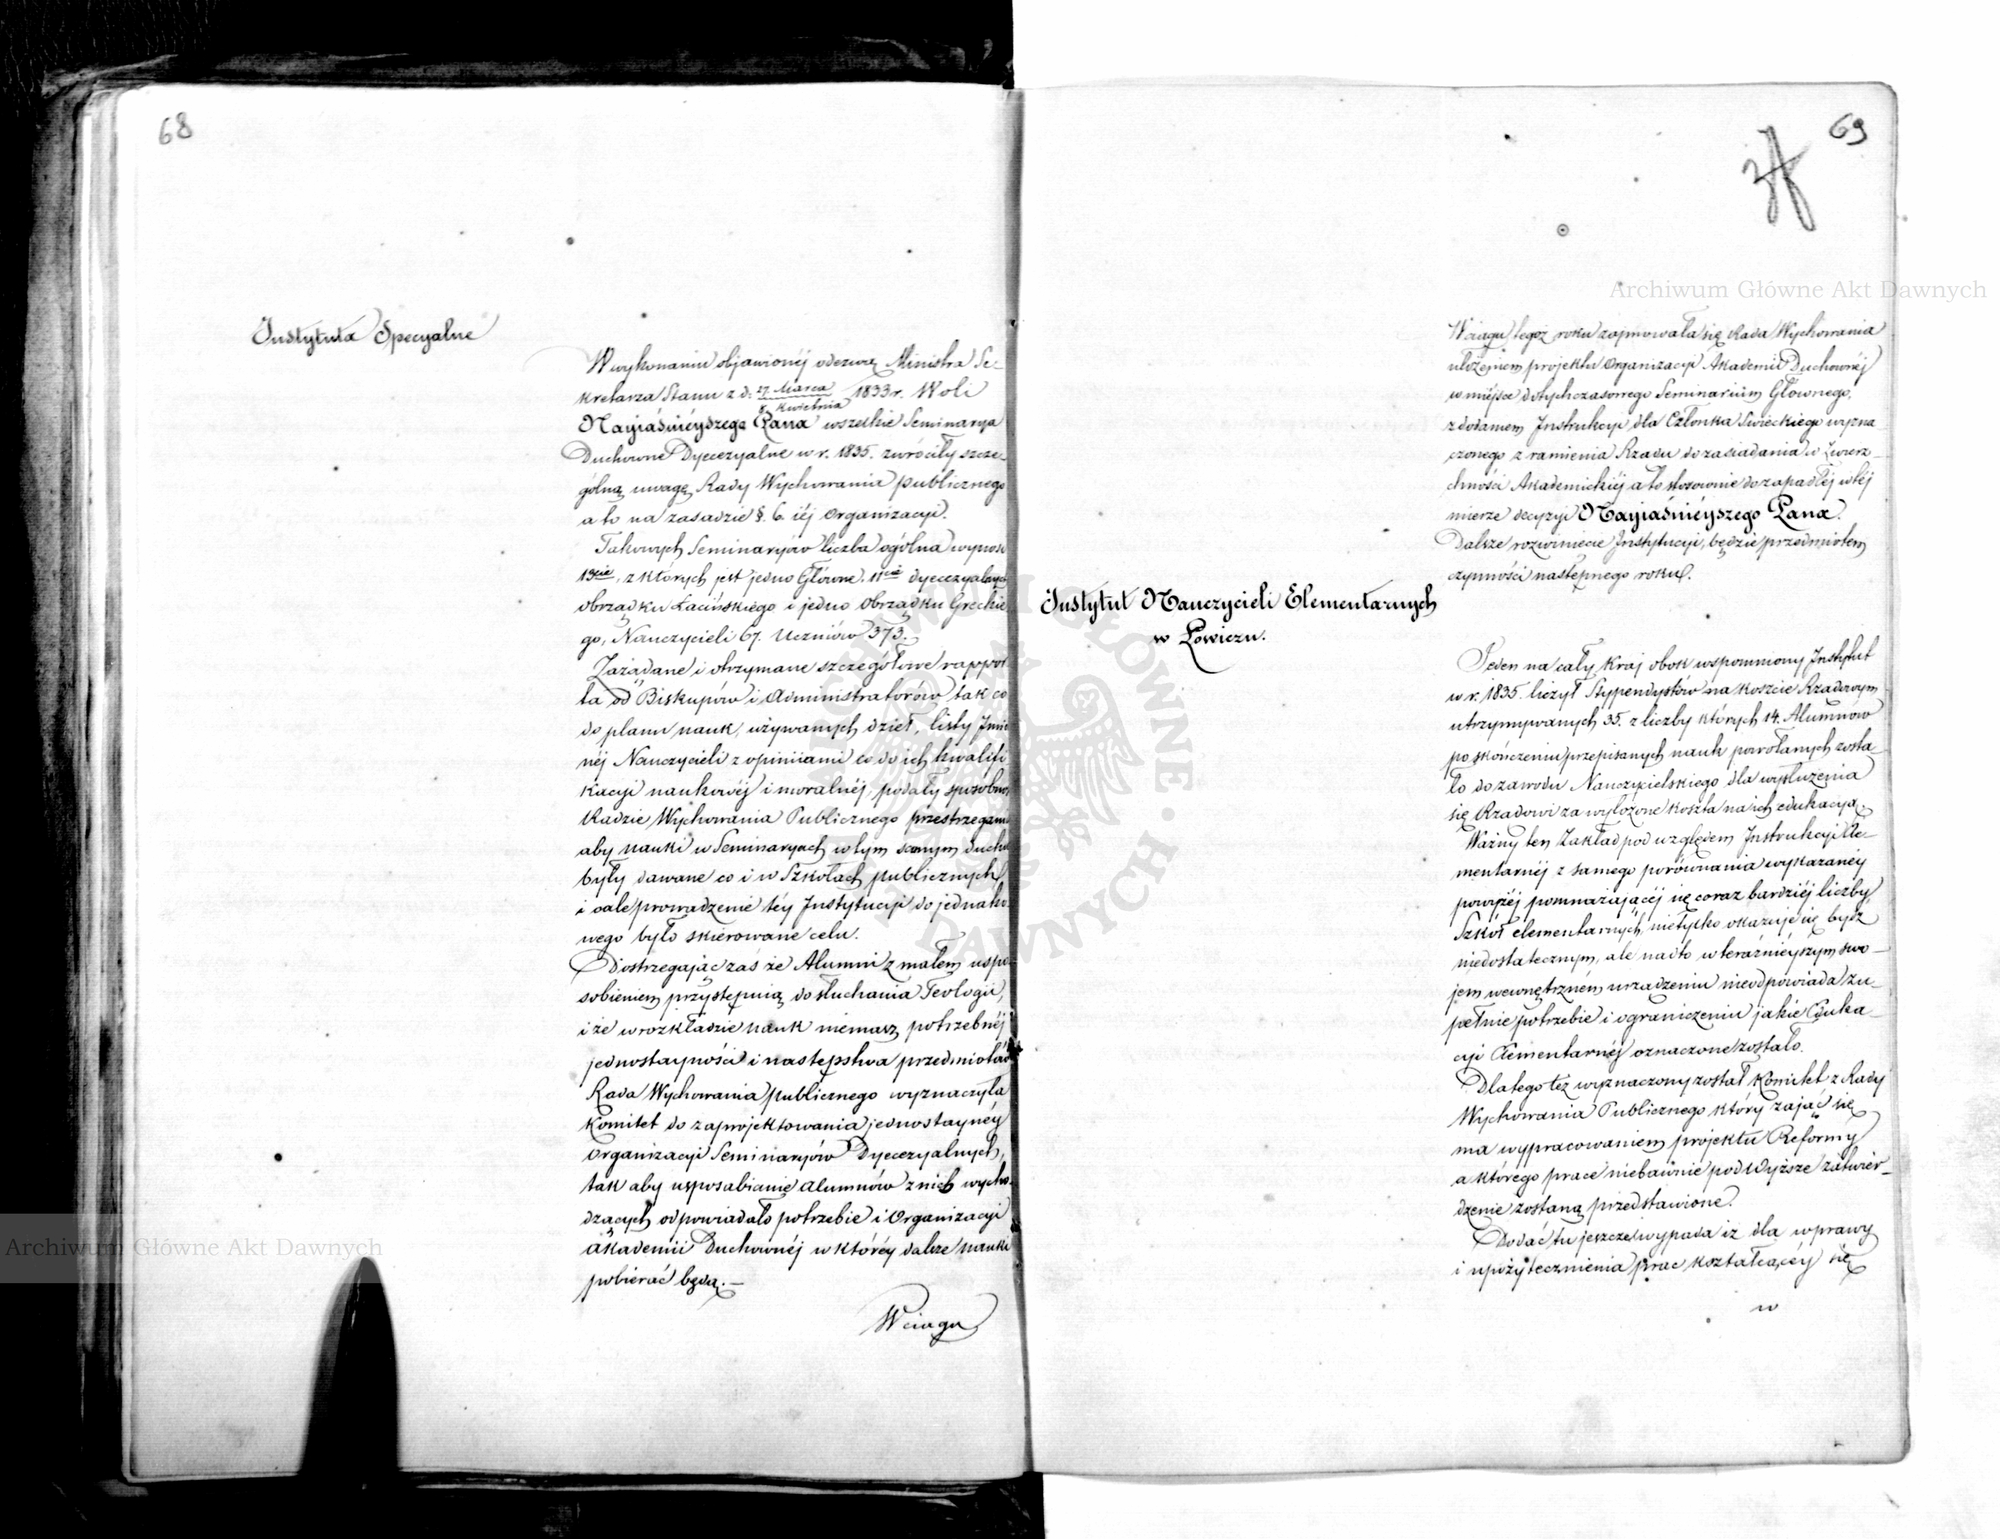 68
Instytuta Specyalne
W wykonaniu objawionéj odezwą Ministra Se-
kretarza Stanu z d. 27 Marca / 8 Kwietnia 1833 r. Woli
Nayiaśnieyszego Pana wszelkie Seminarya
Duchowne Dyecezyalne w r. 1835. zwróciły szcze-
gólną uwagę Rady Wychowania publicznego
a to na zasadzie §. 6. iéj Organizacyi.
Takowych Seminaryów liczba ogólna wynosi
13cie, z których jest jedno Główne. 11cie dyecezyalnych
obrządku Łacińskiego i jedno obrządku Greckie
go, Nauczycieli 67. Uczniów 373.
Zażądane i otrzymane szczegółowe rappor
ta od Biskupów i Administratorów tak co
do planu nauk, używanych dzieł, listy Imie
néj Nauczycieli z opiniiami co do ich kwalifi
kacyi naukowéj i moralnéj, podały sposobność
Radzie Wychowania Publicznego przestrzegania
aby nauki w Seminaryach w tym samym duchu
były dawane co i w Szkołach publicznych,
i całe prowadzenie téy Instytucyi do jednako
wego było skierowane celu.
Dostrzegając zaś że Alumni z małem uspo
sobieniem przystępuią do słuchania Teologii,
i że w rozkładzie nauk niemasz potrzebnéj
jednostayności i następstwa przedmiotów
Rada Wychowania publicznego wyznaczyła
Komitet do zaprojektowania jednostaynéy
Organizacyi Seminaryów Dyecezyalnych,
tak aby usposabianie alumnów z nich wycho-
dzących odpowiadało potrzebie i Organizacyi
akademii Duchownéj w któréy dalsze nauki
pobierać będą.—
W ciągu
69
W ciągu tegoż roku zajmowała się Rada Wychowania
ułożeniem projektu Organizacyi Akademii Duchownéj
w miejsce dotychczasowego Seminarium Głównego,
z dodaniem Instrukcyi dla Członka Świeckiego wyzna
czonego z ramienia Rządu do zasiadania w Zwierz-
chności Akademickiéj a to stosownie do zapadłéj w téj
mierze decyzyi Nayiaśnieyszego Pana.
Dalsze rozwinięcie Instytucyi, będzie przedmiotem
czynności następnego roku.
Instytut Nauczycieli Elementarnych
w Łowiczu.
Jeden na cały kraj obok wspomniony Instytut
w r. 1835. liczył Stypendystów na koszcie Rządowym
utrzymywanych 35. z liczby których 14. Alumnów
po skończeniu przepisanych nauk powołanych zosta-
ło do zawodu Nauczycielskiego dla wysłużenia
się Rządowi za wyłożone koszta na ich edukacyą.
Ważny ten Zakład pod względem Instrukcyi Ele-
mentarnéj z samego porównania wykazanéy
powyżéj pomnażającéj się coraz bardziéj liczby
Szkół elementarnych, nietylko okazuje się bydź
niedostatecznym, ale nadto w teraźnieyszym swo-
jem wewnętrzném urządzeniu nieodpowiada zu-
pełnie potrzebie i ograniczeniu jakie Eduka-
cyi Elementarnéj oznaczone zostało.
Dlatego też wyznaczony został Komitet z Rady
Wychowania Publicznego który zająć się
ma wypracowaniem projektu Reformy
a którego prace niebawnie pod Wyższe zatwier-
dzenie zostaną przedstawione.
Dodać tu jeszcze wypada iż dla wprawy
i upożytecznienia prac kształcącéy się
w
Archiwum Główne Akt Dawnych
Archiwum Główne Akt Dawnych
ARCHIWUM GŁÓWNE AKT DAWNYCH